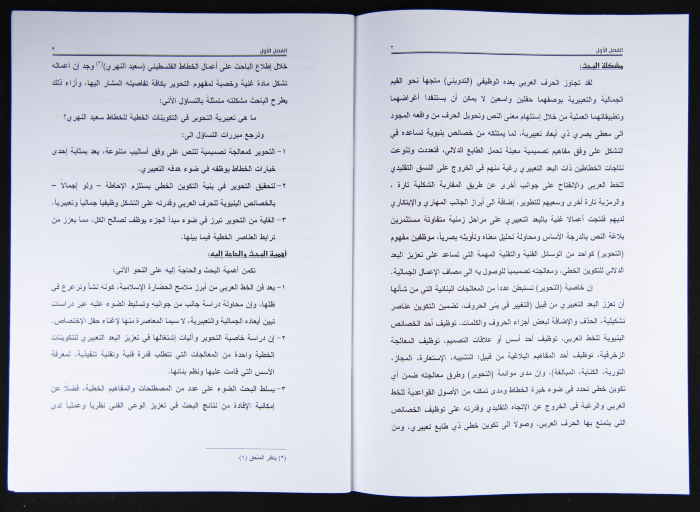 الفصل الأول
٢
مشكلة البحث:
لقد تجاوز الحرف العربي بعده الوظيفي (التدويني) متجهاً نحو القيم
الجمالية والتعبيرية بوصفهما حقلين واسعين لا يمكن أن يستنفدا أغراضهما
وتطبيقاتهما العملية من خلال إستلهام معنى النص وتحويل الحرف من واقعه المجرد
الى معطى بصري ذي أبعاد تعبيرية، لما يمتلكه من خصائص بنيوية تساعده في
التشكل على وفق مفاهيم تصميمية معينة تحمل الطابع الدلالي، فتعددت وتنوعت
نتاجات الخطاطين ذات البعد التعبيري رغبة منهم في الخروج على النسق التقليدي
للخط العربي والإنفتاح على جوانب أخرى عن طريق المقاربة الشكلية تارة ،
والرمزية تارة أخرى وسعيهم للتطوير، إضافة الى أبراز الجانب المهاري والإبتكاري
لديهم فنتجت أعمالا غنية بالبعد التعبيري على مراحل زمنية متفاوتة مستثمرين
بلاغة النص بالدرجة الأساس ومحاولة تحليل معناه وتأويله بصرياً، موظفين مفهوم
(التحوير) كواحد من الوسائل الفنية والتقنية المهمة التي تساعد على تعزيز البعد
الدلالي للتكوين الخطي، ومعالجته تصميميا للوصول به الى مصاف الإعمال الجمالية.
إن خاصية (التحوير) تستبطن عدداً من المعالجات البنائية التي من شأنها
أن تعزز البعد التعبيري من قبيل (التغيير في بنى الحروف، تضمين التكوين عناصر
تشكيلية، الحذف والإضافة لبعض أجزاء الحروف والكلمات، توظيف أحد الخصائص
البنيوية للخط العربي، توظيف أحد أسس أو علاقات التصميم، توظيف المعالجة
الزخرفية، توظيف أحد المفاهيم البلاغية من قبيل: التشبيه، الإستعارة، المجاز،
التورية، الكناية، المبالغة)، وإن مدى موائمة (التحوير) وطرق معالجته ضمن أي
تكوين خطي تحدد في ضوء خبرة الخطاط ومدى تمكنه من الأصول القواعدية للخط
العربي والرغبة في الخروج عن الإتجاه التقليدي وقدرته على توظيف الخصائص
التي يتمتع بها الحرف العربي، وصولاً الى تكوين خطي ذي طابع تعبيري، ومن
الفصل الأول
٣
خلال إطلاع الباحث على أعمال الخطاط الفلسطيني (سعيد النهري)(*) وجد إن اعماله
تشكل مادة غنية وخصبة لمفهوم التحوير بكافة تفاصيله المشار اليها، وأزاء ذلك
يطرح الباحث مشكلته متمثلة بالتساؤل الآتي:
ما هي تعبيرية التحوير في التكوينات الخطية للخطاط سعيد النهري؟
وترجع مبررات التساؤل الى:
١- التحوير كمعالجة تصميمية للنص على وفق أساليب متنوعة، يعد بمثابة إحدى
خيارات الخطاط يوظفه في ضوء هدفه التعبيري.
٢- لتحقيق التحوير في بنية التكوين الخطي يستلزم الإحاطة – ولو إجمالا –
بالخصائص البنيوية للحرف العربي وقدرته على التشكل وظيفياً جمالياً وتعبيرياً.
٣- الغاية من التحوير تبرز في ضوء مبدأ الجزء يوظف لصالح الكل، مما يعزز من
ترابط العناصر الخطية فيما بينها.
أهمية البحث والحاجة إليه:
تكمن أهمية البحث والحاجة إليه على النحو الآتي:
١- يعد فن الخط العربي من أبرز ملامح الحضارة الإسلامية، كونه نشأ وترعرع في
ظلها، وإن محاولة دراسة جانب من جوانبه وتسليط الضوء عليه عبر دراسات
تبين أبعاده الجمالية والتعبيرية، لا سيما المعاصرة منها لإغناء حقل الإختصاص.
٢- إن دراسة خاصية التحوير وآليات إشتغالها في تعزيز البعد التعبيري للتكوينات
الخطية واحدة من المعالجات التي تتطلب قدرة فنية وتقنية تنفيذية، لمعرفة
الأسس التي قامت عليها ونظم بنائها.
٣- يسلط البحث الضوء على عدد من المصطلحات والمفاهيم الخطية، فضلا عن
إمكانية الإفادة من نتائج البحث في تعزيز الوعي الفني نظرياً وعملياً لدى
(*) ينظر الملحق (١).